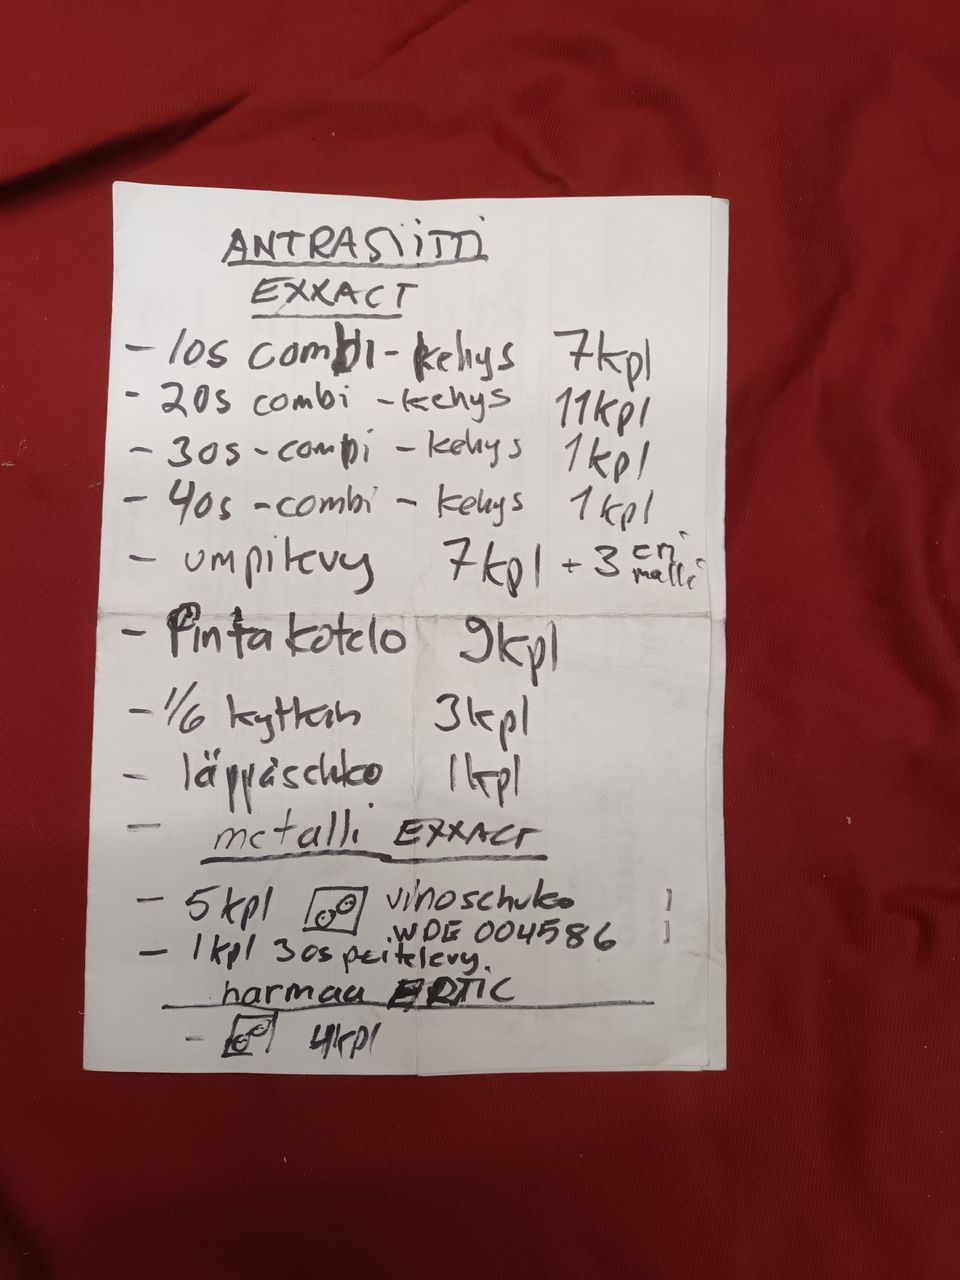 ANTRASiiTTi
EXXACT
- 1os combi - kehys 7kpl
- 2os combi - kehys 11kpl
- 3os - combi - kehys 1kpl
- 4os - combi - kehys 1kpl
- umpilevy 7kpl + 3 eri malli
- Pintakotelo 9kpl
- 1/6 kytkin 3kpl
- läppäschko 1kpl
- metalli EXXACT
- 5kpl vinoschuko
WDE 004586
- 1kpl 3os peitelevy.
harmaa
- 4kpl